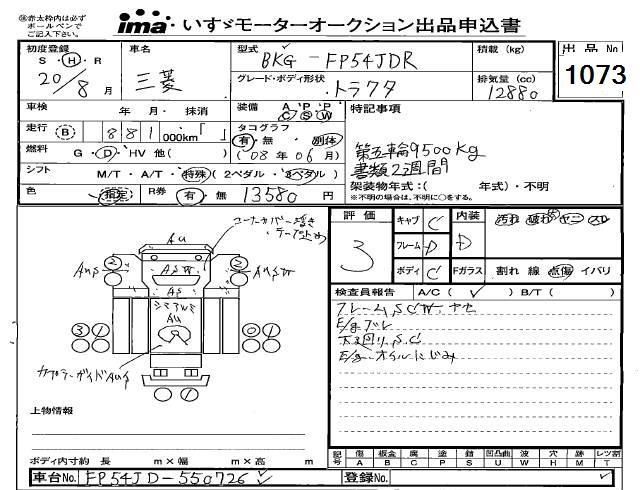 ※赤太枠内は必ずボールペンでご記入下さい。
ima いすゞモーターオークション出品申込書
初度登録 S・H・R 20/8月
車名 三菱
型式 BKG-FP54JDR
積載 (kg)
出品No 1073
グレード・ボディ形状 トラクタ
排気量 (cc) 12880
車検 年 月・抹消
装備 A C P S P W
特記事項
走行 B 881000km「 」
タコグラフ 有・無・別体 ('08年06月)
第五輪9500kg
書類2週間
燃料 G・D・HV 他( )
シフト M/T・A/T・特殊 (2ペダル・3ペダル)
架装物年式:( 年式)・不明
※不明の場合は、不明に○をする。
色 R券 有・無 13580円
コーナーカバー
テープ止め
AU
2 2
ASW
AS
AU
3 1 0 1
カプラーガイド
評価 3
キャブ C
フレーム D
ボディ C
内装 D 汚れ 破れ ヤニ スレ
Fガラス 割れ 線 点傷 イバリ
検査員報告 A/C( ✓ ) B/T( )
フレーム、SCW.
E/gブレ
下廻り、S.C
E/g.オイルにじみ
上物情報
ボディ内寸約 長 m×幅 m×高 m
記号 傷A 板金B 腐C 塗P 錆S 凹凸曲U 波W 穴H 跡M レツ割T
車台No. FP54JD-550726
登録No.